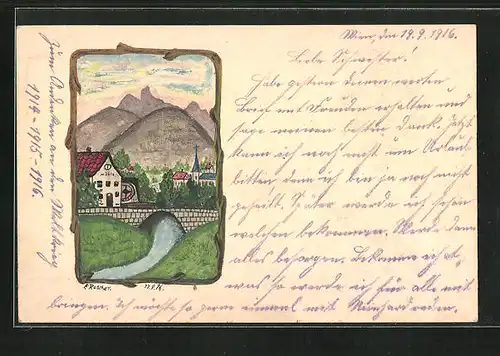 Wien, den 19.9.1916.
Liebe Schwester!
Habe gestern deinen werten
Brief mit Freuden erhalten und
sage meinen besten Dank. Jetzt
kann ich noch nicht um Urlaub
bitten, denn ich bin ja noch nicht
geheilt. Später werde ich schon
welchen bekommen. Werde dann
alles besorgen. Bekomme ich et-
was so werde ich für alle mit
bringen. Ich möchte so gern einmal mit reden.
Zum Andenken an den Weltkrieg
1914-1915-1916